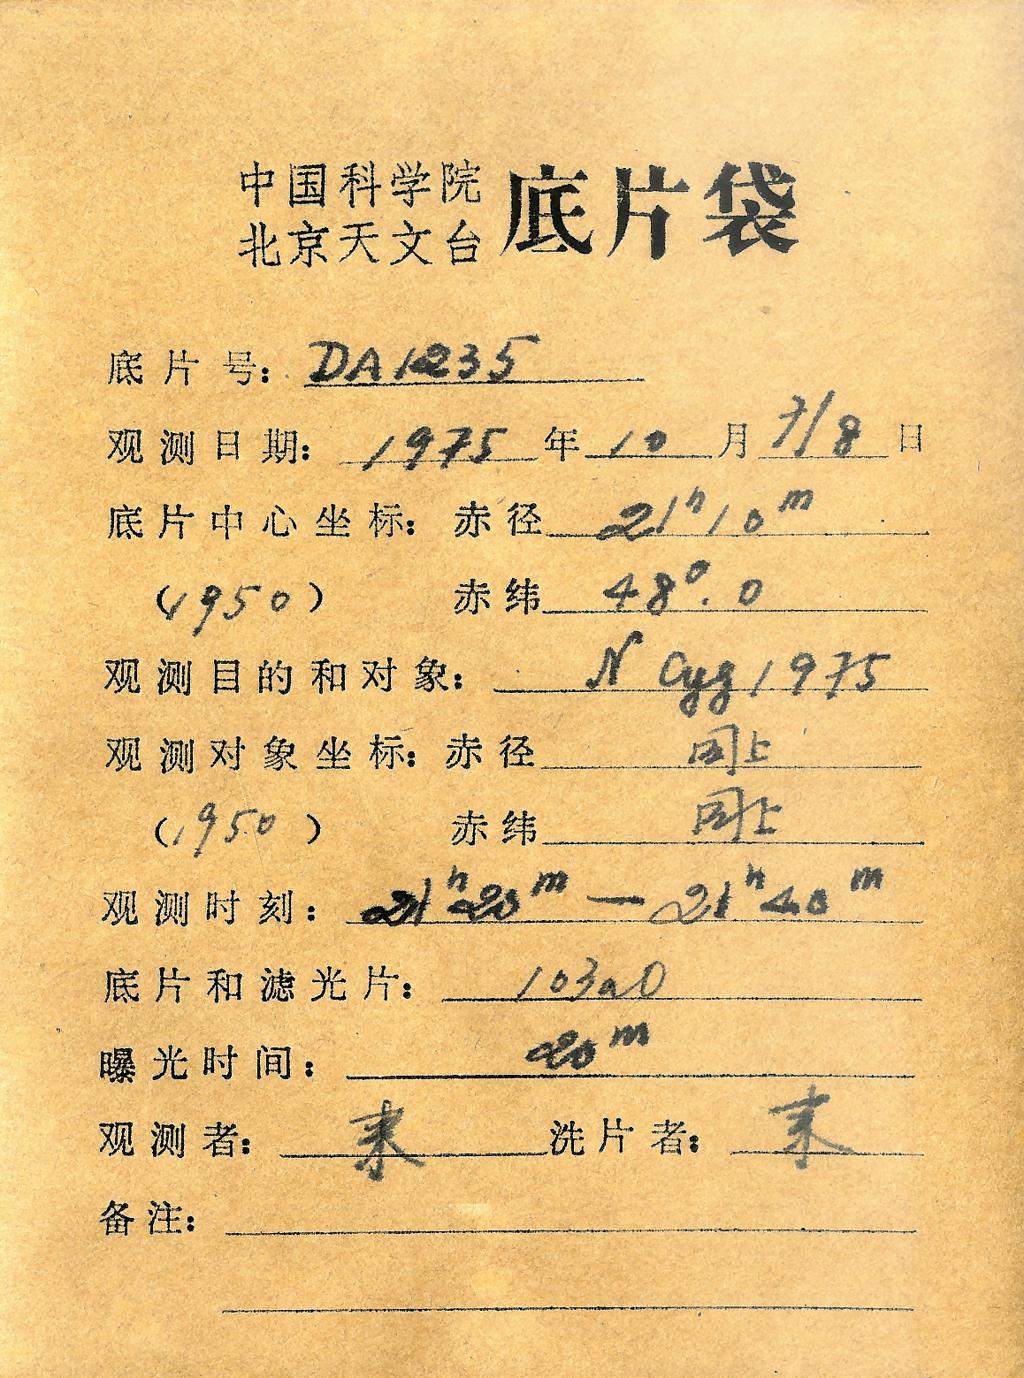 中国科学院
北京天文台 底片袋
底片号: DA1235
观测日期: 1975年10月7/8日
底片中心坐标: 赤径 21h10m
(1950) 赤纬 48°.0
观测目的和对象: N Cyg 1975
观测对象坐标: 赤径 同上
(1950) 赤纬 同上
观测时刻: 21h20m — 21h40m
底片和滤光片: 103aO
曝光时间: 20m
观测者: 洗片者:
备注: